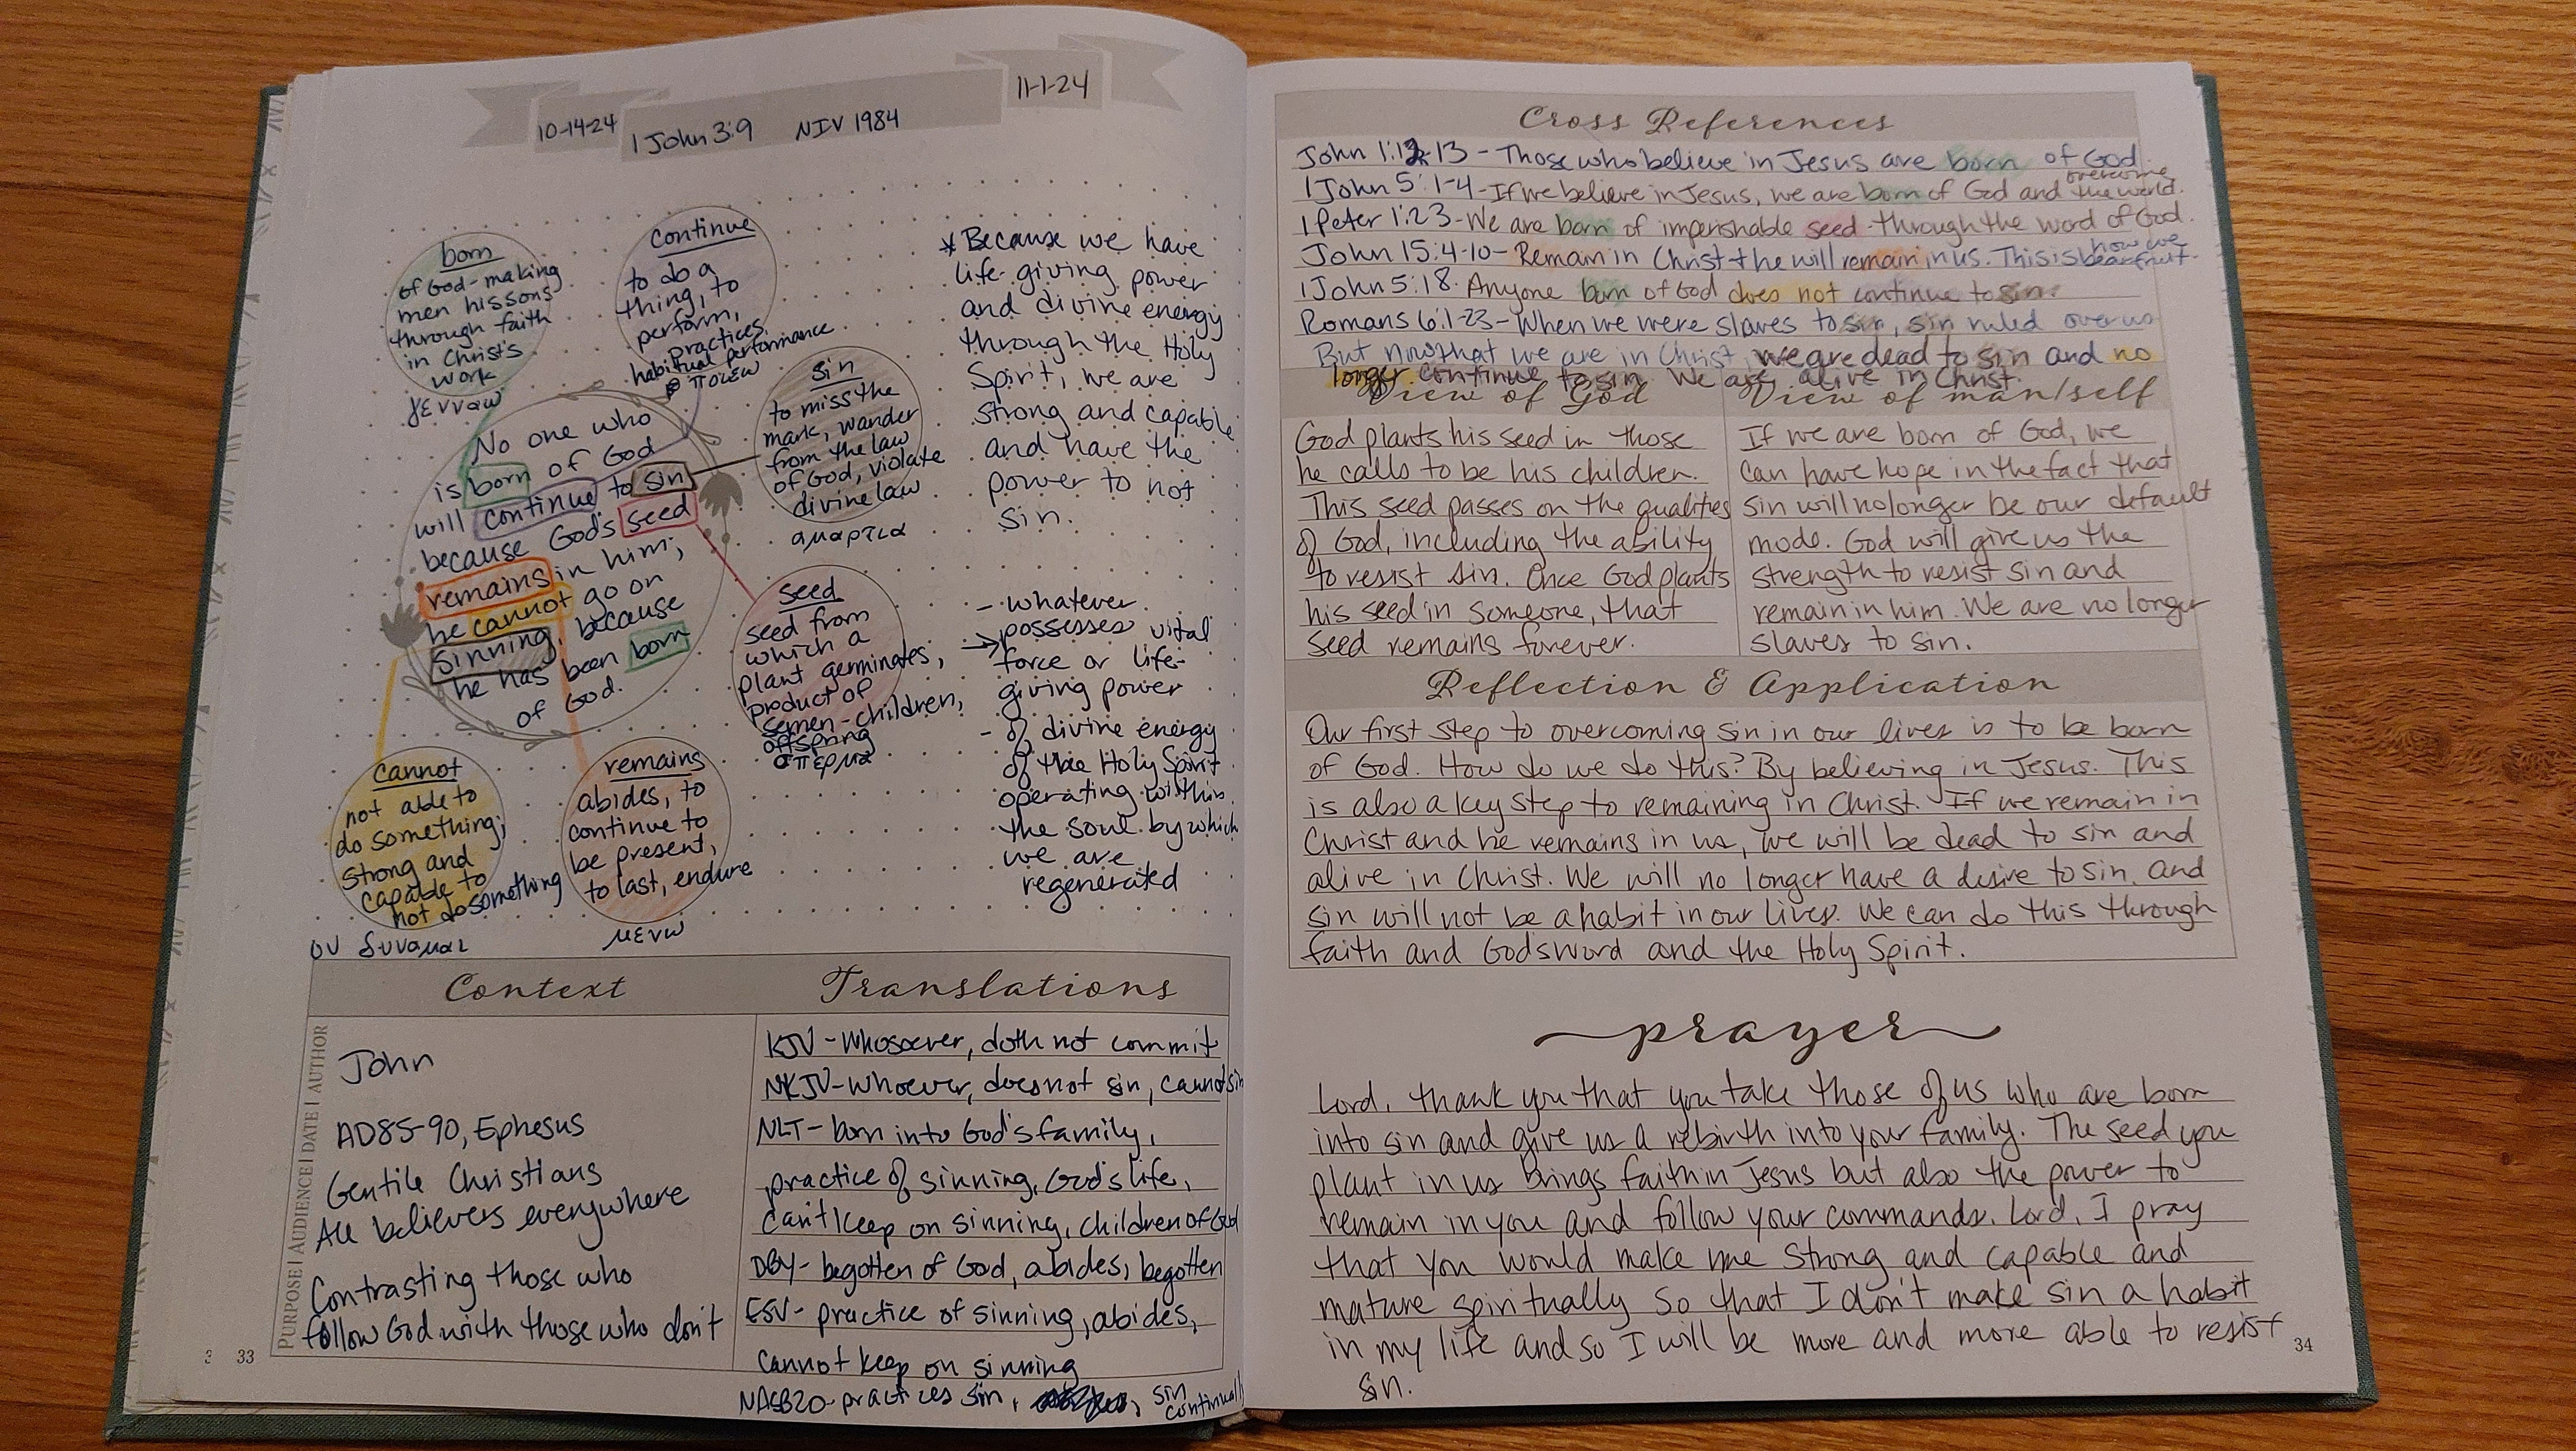 10-14-24
1 John 3:9 NIV 1984
11-1-24
born
of God-making
men his sons
through faith
in Christ's
work
γεννaω
continue
to do a
thing, to
perform,
practices,
habitual performance
ποιεω
sin
to miss the
mark, wander
from the law
of God, violate
divine law
αμαρτια
No one who
is born of God
will continue to sin
because God's seed
remains in him;
he cannot go on
sinning, because
he has been born
of God.
seed
seed from
which a
plant germinates,
product of
semen-children,
offspring
σπερμα
cannot
not able to
do something;
strong and
capable to
not do something
ου δυναμαι
remains
abides, to
continue to
be present,
to last, endure
μενω
* Because we have
life-giving power
and divine energy
through the Holy
Spirit, we are
strong and capable
and have the
power to not
sin.
- whatever
→ possesses vital
force or life-
giving power
- of divine energy
of the Holy Spirit
operating within
the soul by which
we are
regenerated
Context
PURPOSE | AUDIENCE | DATE | AUTHOR
John
AD85-90, Ephesus
Gentile Christians
All believers everywhere
Contrasting those who
follow God with those who don't
Translations
KJV - Whosoever, doth not commit
NKJV - Whoever, does not sin, cannot sin
NLT - born into God's family,
practice of sinning, God's life,
can't keep on sinning, children of God
DBY - begotten of God, abides, begotten
ESV - practice of sinning, abides,
cannot keep on sinning
NASB20-practices sin, sin
continually
33
Cross References
John 1:12-13 - Those who believe in Jesus are born of God.
1 John 5:1-4 - If we believe in Jesus, we are born of God and overcome the world.
1 Peter 1:23 - We are born of imperishable seed through the word of God.
John 15:4-10 - Remain in Christ + he will remain in us. This is how we bear fruit.
1 John 5:18. Anyone born of God does not continue to sin.
Romans 6:1-23 - When we were slaves to sin, sin ruled over us
But now that we are in Christ, we are dead to sin and no
longer continue to sin. We are alive in Christ.
View of God
God plants his seed in those
he calls to be his children.
This seed passes on the qualities
of God, including the ability
to resist sin. Once God plants
his seed in someone, that
seed remains forever.
View of man/self
If we are born of God, we
can have hope in the fact that
sin will no longer be our default
mode. God will give us the
strength to resist sin and
remain in him. We are no longer
slaves to sin.
Reflection & Application
Our first step to overcoming sin in our lives is to be born
of God. How do we do this? By believing in Jesus. This
is also a key step to remaining in Christ. If we remain in
Christ and he remains in us, we will be dead to sin and
alive in Christ. We will no longer have a desire to sin, and
sin will not be a habit in our lives. We can do this through
faith and God's word and the Holy Spirit.
prayer
Lord, thank you that you take those of us who are born
into sin and give us a rebirth into your family. The seed you
plant in us brings faith in Jesus but also the power to
remain in you and follow your commands. Lord, I pray
that you would make me strong and capable and
mature spiritually so that I don't make sin a habit
in my life and so I will be more and more able to resist
sin.
34